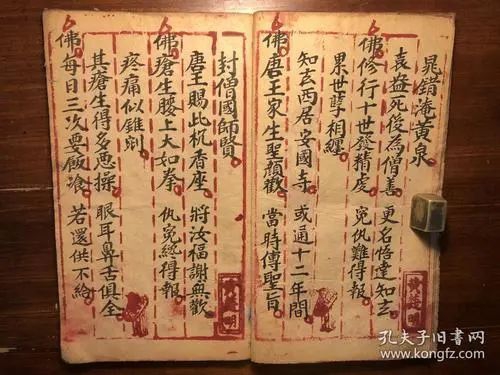 晁錯淹黃泉
袁盎死後為僧善 更名悟達知玄
佛修行十世發精虔 冤仇難得報
累世孽相纏
知玄西居安國寺 或通十二年間
佛唐王家生聖顏歡 當時傳聖旨
封僧國師賢
唐王賜此杌香座 將汝福謝與歡
佛瘡生腰上大如拳 仇冤總得報
疼痛似錐剜
其瘡生得多悪操 眼耳鼻舌俱全
佛每日三次要飯飡 若還供不給
孔夫子旧书网
www.kongfz.com